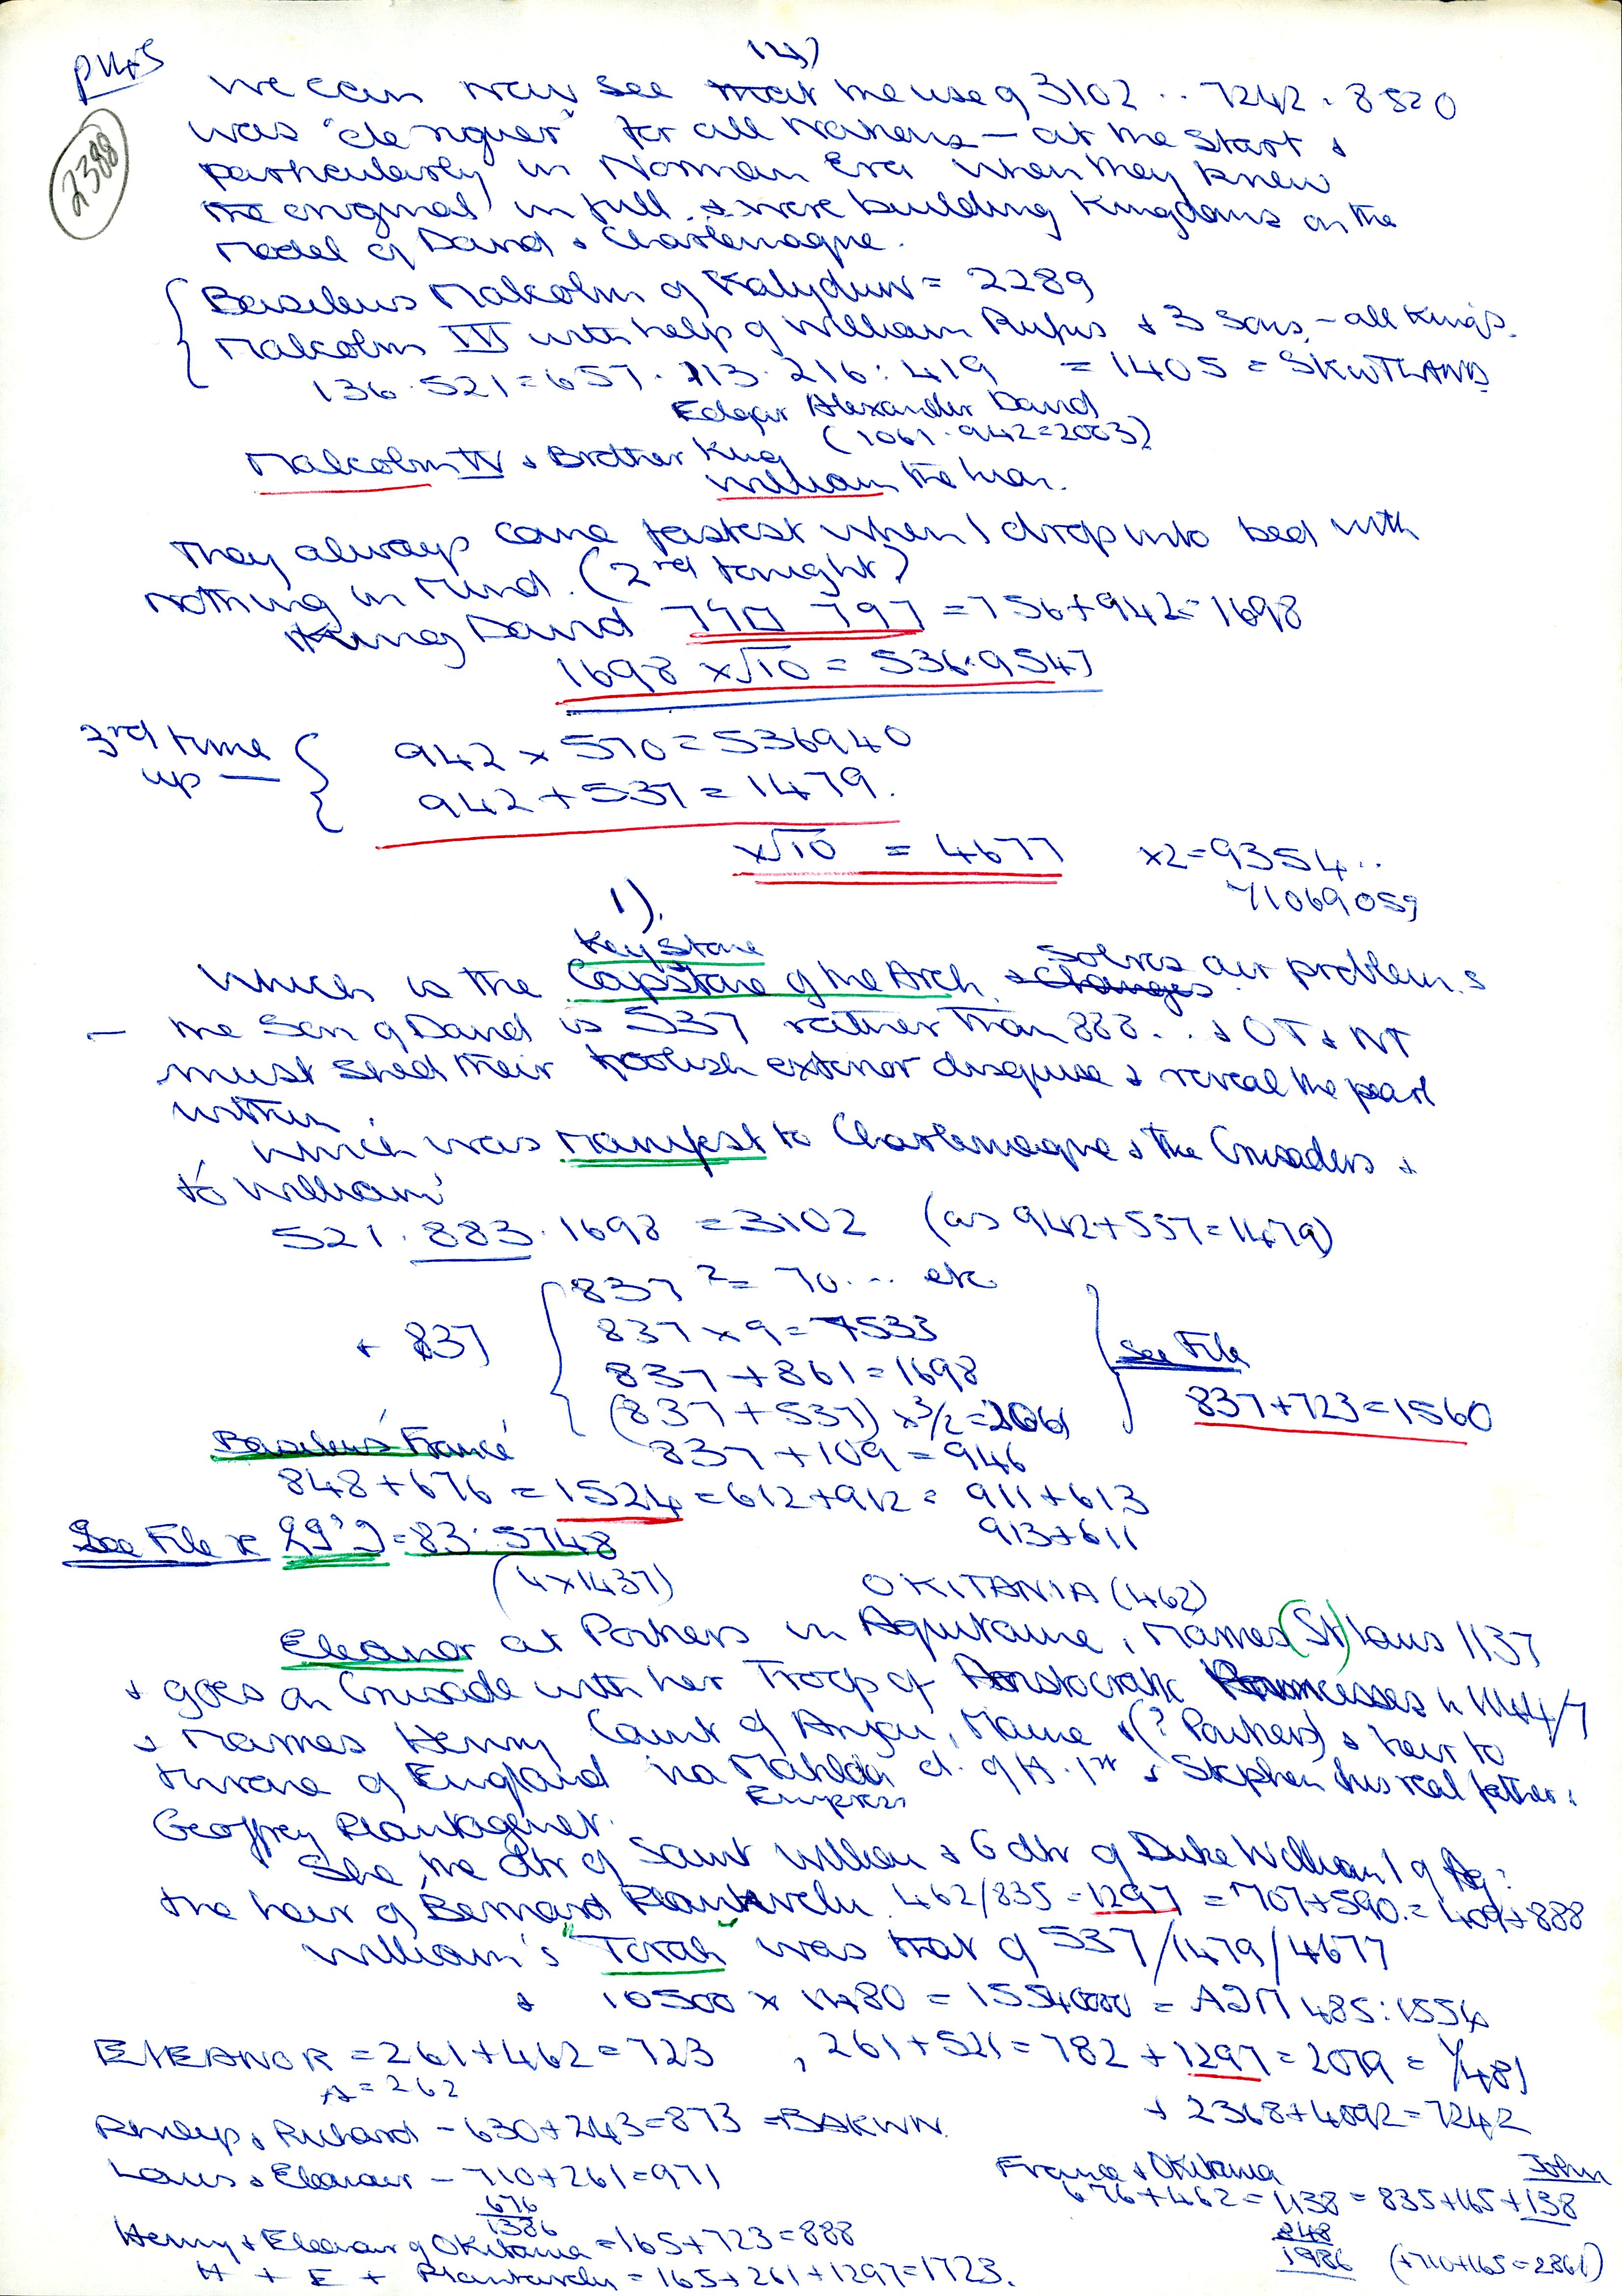 P14+5
(2388)
14)
We can now see that the use of 3102 .. 7242 . 8520
was "de riguer" for all Nations — at the Start &
particularly in Norman Era when they knew
the original in full & were building Kingdoms on the
Model of David & Charlemagne.
Basileus Malcolm of Kalyduw = 2289
Malcolm III with help of William Rufus & 3 Sons, - all Kings.
136 . 521 = 657 . 113 . 216 : 419 = 1405 = SKWTLAND
Edgar Alexander David
(1061 . 942 = 2003)
Malcolm IV & Brother King
William the Lion.
They always come fastest when I drop into bed with
nothing in Mind. (2nd tonight)
King David = 756 + 942 = 1698
1698 x √10 = 536.9547
3rd time
up —
942 x 570 = 536940
942 + 537 = 1479.
x √10 = 4677 x2 = 9354 ..
71069059
1).
Keystone
Which is the Capstone of the Arch & changes solves our problems
— the Son of David is 537 rather than 888 .. & OT & NT
must shed their foolish exterior disguise & reveal the pearl
within.
Which was Manifest to Charlemagne & the Crusaders &
to William
521 . 883 . 1698 = 3102 (as 942 + 537 = 1479)
837² = 70 ... etc
+ 837
837 x 9 = 7533
837 + 861 = 1698
(837 + 537) x 3/2 = 2061
837 + 109 = 946
See File
837 + 723 = 1560
Basileus France
848 + 676 = 1524 = 612 + 912 = 911 + 613
913 + 611
See File re = 83 : 5748
(4 x 1437)
OKITANIA (462)
Eleanor at Poitiers in Aquitaine, Marries (St) Louis 1137
& goes on Crusade with her Troop of Aristocratic Princesses in 1144/7
& Marries Henry Count of Anjou, Maine & (? Poitiers) & heir to
throne of England via Matilda d. of H. 1st & Stephen his real father:
Empress
Geoffrey Plantagenet.
She, the dtr of Saint William & G dtr of Duke William I of Aq:
the heir of Bernard Plantevelu. 462/835 = 1297 = 707 + 590 = 409 + 888
William's "Torah" was that of 537/1479/4677
& 10500 x 1480 = 15540000 = 485 : 1554
ELEANOR = 261 + 462 = 723 , 261 + 521 = 782 + 1297 = 2079 = 1/481
A = 262
+ 2368 + 4892 = 7242
Philip & Richard - 630 + 243 = 873 = BAKWN.
Louis & Eleanor - 710 + 261 = 971
676
1386
France & Okitania
John
676 + 462 = 1138 = 835 + 165 + 138
848
1986 (+710 + 165 = 2861)
Henry & Eleanor of Okitania = 165 + 723 = 888
H + E + Plantevelu = 165 + 261 + 1297 = 1723.